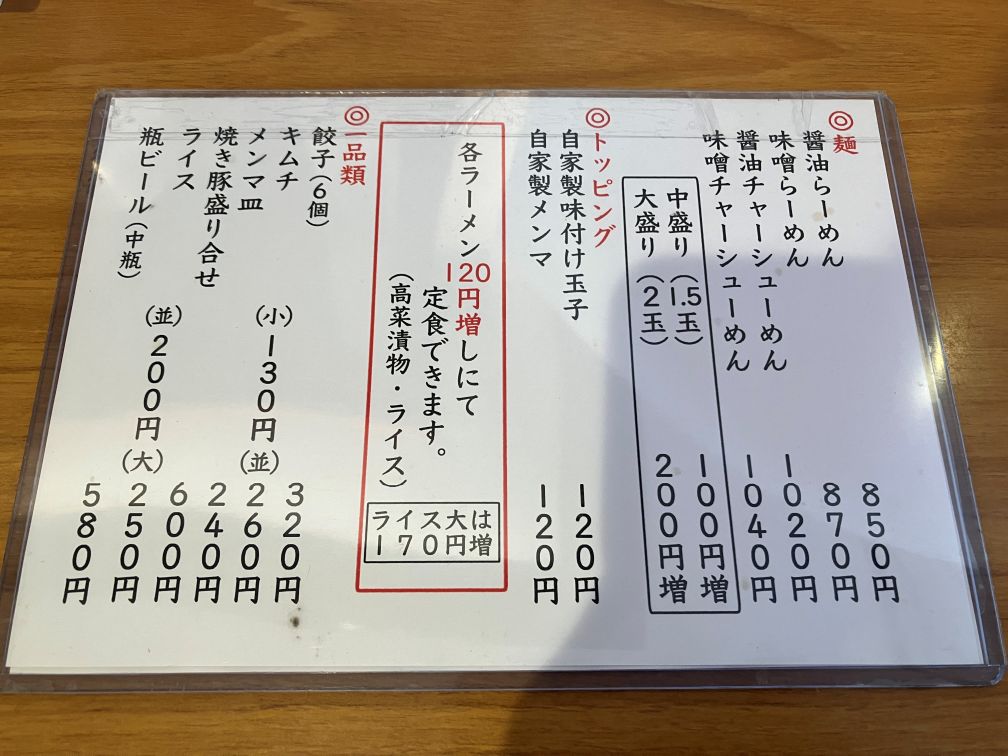 ◎麺
醤油らーめん 850円
味噌らーめん 870円
醤油チャーシューめん 1020円
味噌チャーシューめん 1040円
中盛り(1.5玉) 100円増
大盛り(2玉) 200円増
◎トッピング
自家製味付け玉子 120円
自家製メンマ 120円
各ラーメン120円増しにて
定食できます。
(高菜漬物・ライス)
ライス大は
170円増
◎一品類
餃子(6個) 320円
キムチ (小)130円(並)260円
メンマ皿 240円
焼き豚盛り合せ 600円
ライス (並)200円(大)250円
瓶ビール(中瓶) 580円